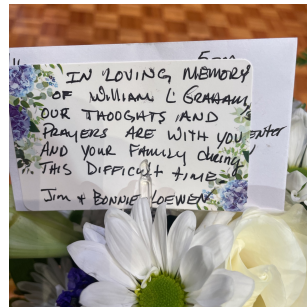 IN LOVING MEMORY
OF William L GRAHAM
OUR THOUGHTS AND
PRAYERS ARE WITH YOU
AND YOUR FAMILY during
THIS DIFFICULT TIME
Jim & BONNIE LOEWEN
enter